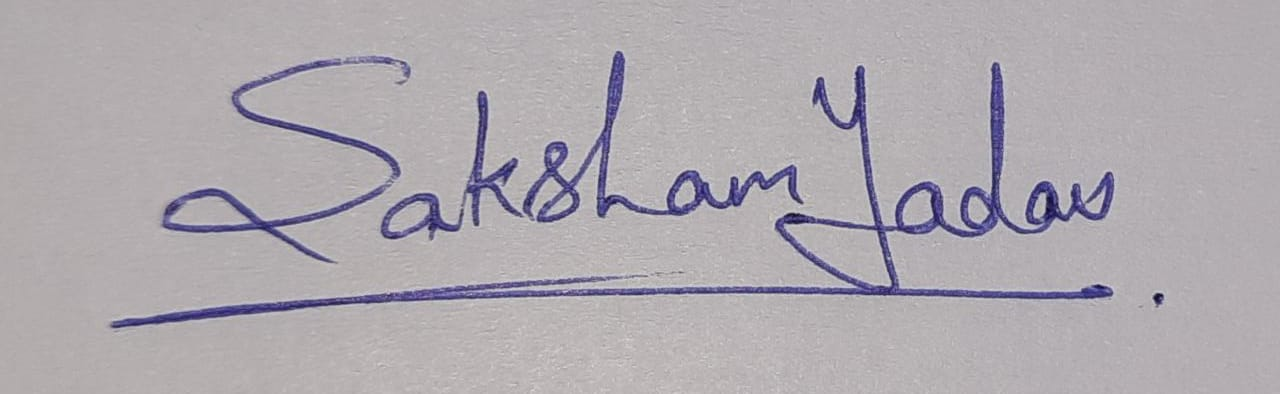 Saksham Yadav.